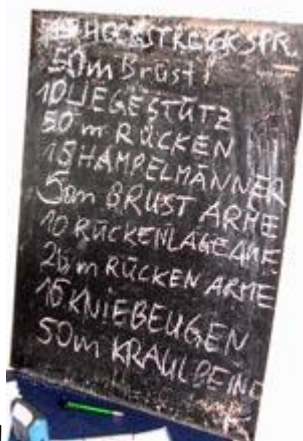 15 HOCKSTRECKSPR.
50m Brust
10 LIEGESTÜTZ
50 m RÜCKEN
15 HAMPELMÄNNER
50m BRUST ARME
10 RÜCKENLAGE AUF
25 m RÜCKEN ARME
15 KNIEBEUGEN
50m KRAULBEINE